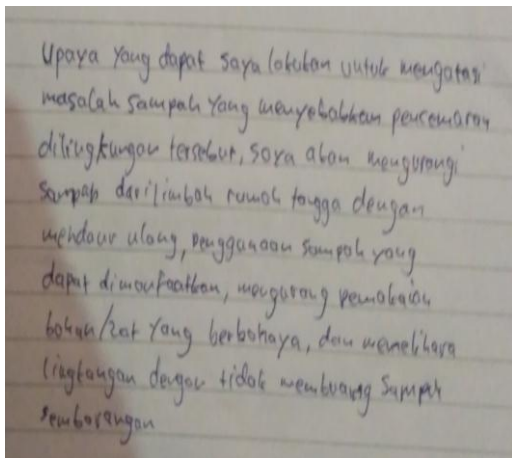 Upaya yang dapat saya lakukan untuk mengatasi
masalah sampah yang menyebabkan pencemaran
dilingkungan tersebut, saya akan mengurangi
sampah dari limbah rumah tangga dengan
mendaur ulang, penggunaan sampah yang
dapat dimanfaatkan, mengurang pemakaian
bahan/zat yang berbahaya, dan memelihara
lingkangan dengan tidak membuang sampah
sembarangan